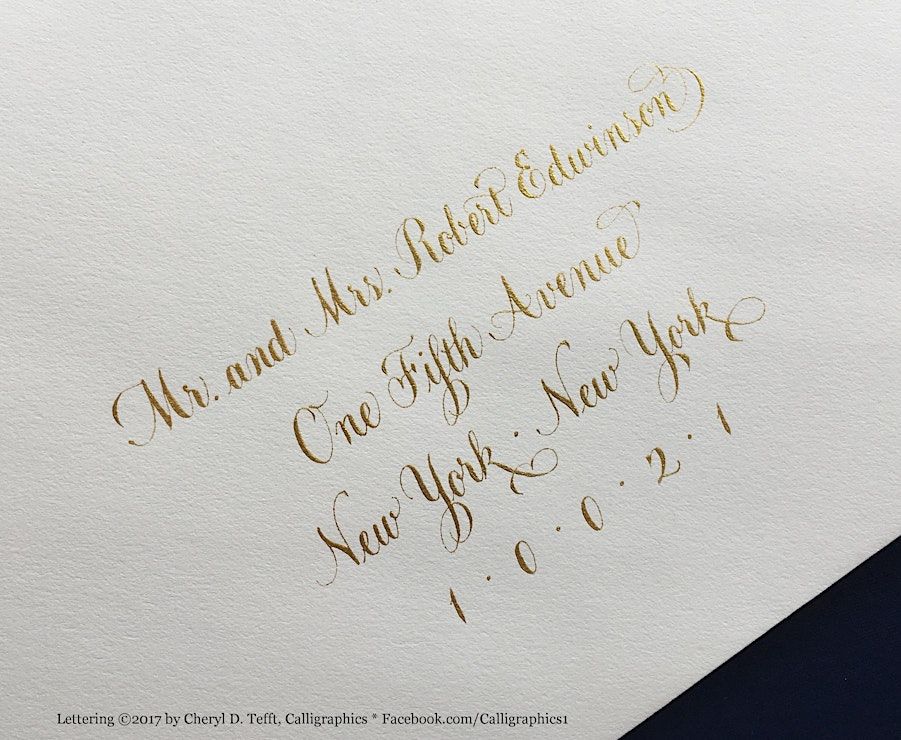 Mr. and Mrs. Robert Edwinson
One Fifth Avenue
New York · New York
1 · 0 · 0 · 2 · 1
Lettering ©2017 by Cheryl D. Tefft, Calligraphics * Facebook.com/Calligraphics1